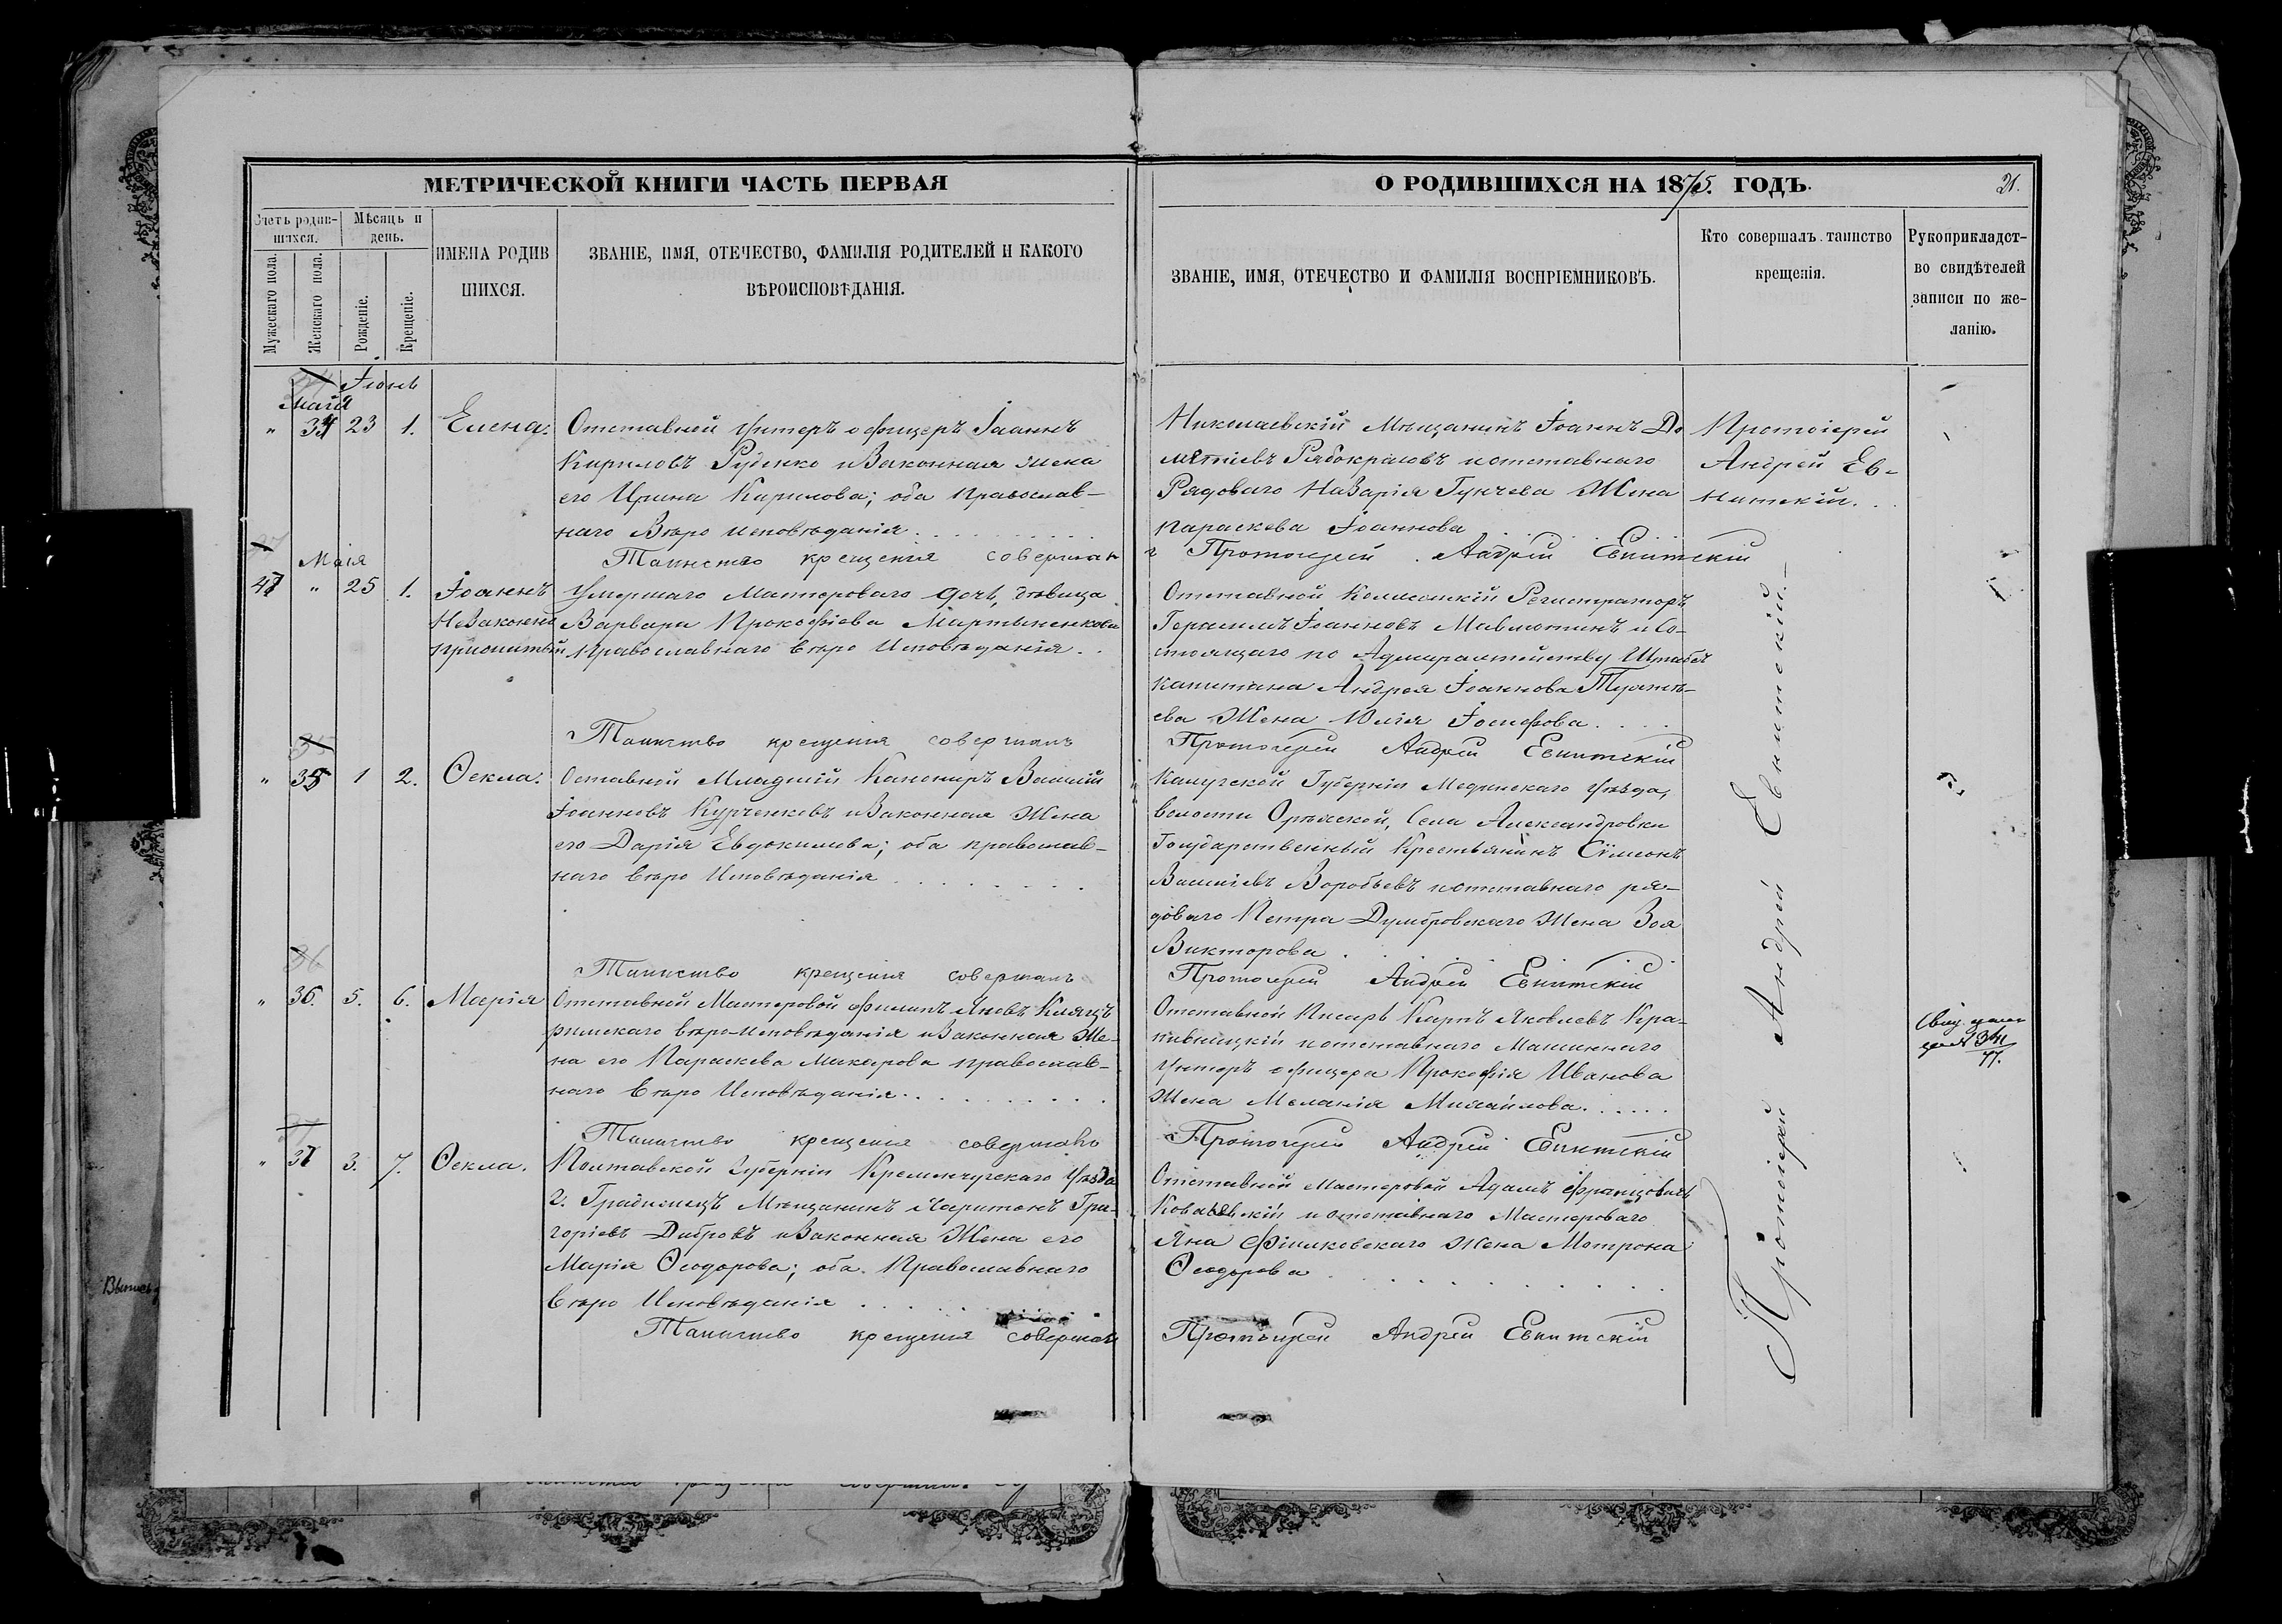 МЕТРИЧЕСКОЙ КНИГИ ЧАСТЬ ПЕРВАЯ
Счетъ родив-
шихся.
Мѣсяцъ и
день.
Мужескаго пола.
Женскаго пола.
Рожденіе.
Крещеніе.
ИМЕНА РОДИВ
ШИХСЯ.
ЗВАНІЕ, ИМЯ, ОТЕЧЕСТВО, ФАМИЛІЯ РОДИТЕЛЕЙ И КАКОГО
ВѢРОИСПОВѢДАНІЯ.
Іюнь
Маія
" 34 23 1. Елена. Отставной Унтеръ офицеръ Іоаннъ
Кириловъ Руденко и Законная жена
его Ирина Кирилова; оба Православ-
наго Вѣро исповѣданія
Таинство крещенія совершал
Маія
47 " 25 1. Іоаннъ Умершаго Мастероваго дочь, дѣвица
Незаконно Варвара Прокофіева Мартыненкова
прижитый Православнаго вѣро Исповѣданія
Таинство крещенія совершалъ
" 35 1 2. Ѳекла. Оставной Младшій Канониръ Василій
Іоанновъ Курченковъ и Законная Жена
его Дарія Евдокимова; оба православ-
наго вѣро Исповѣданія
Таинство крещенія совершалъ
" 36. 5. 6. Марія Отставной Мастеровой Филипъ Яновъ
римскаго вѣро-исповѣданія и Законная Же-
на его Параскева Макарова православ-
наго вѣро Исповѣданія
Таинство крещенія совершалъ
" 37 3. 7. Ѳекла. Полтавской Губерніи Кременчугскаго Уѣзда
г. Градижска Мѣщанинъ Харитонъ Гри-
горіевъ Дибровъ и Законная Жена его
Марія Ѳеодорова; оба Православнаго
вѣро Исповѣданія
Таинство крещенія совершалъ
О РОДИВШИХСЯ НА 1875. ГОДЪ.
21.
ЗВАНІЕ, ИМЯ, ОТЕЧЕСТВО И ФАМИЛІЯ ВОСПРІЕМНИКОВЪ.
Кто совершалъ таинство
крещенія.
Рукоприкладст-
во свидѣтелей
записи по же-
ланію.
Николаевскій Мѣщанинъ Іоаннъ До
метіевъ Рябокрисовъ и отставнаго
Рядоваго Назарія Гунчева Жена
Параскева Іоаннова
Протоіерей
Андрей Ев-
нитскій.
Протоіерей Андрей Евнитскій
Отставной Коллежскій Регистраторъ
Герасимъ Іоанновъ и Со-
стоящаго по Адмиралтейству Штабсъ
капитана Андрея Іоаннова
ева Жена Юлія Іосифова
Протоіерей Андрей Евнитскій
Калужской Губерніи Медынскаго Уѣзда,
волости Села Александровки
Государственный Крестьянинъ Сѵмеонъ
Василіевъ Воробьевъ и отставнаго ря-
доваго Петра Думбровскаго Жена Зоя
Викторова
Протоіерей Андрей Евнитскій
Отставной Писарь Карпъ Яковлевъ Кра-
пивницкій и отставнаго Машиннаго
Унтеръ офицера Прокофія Иванова
Жена Меланія Михайлова
Протоіерей Андрей Евнитскій
Отставной Мастеровой Адамъ Францовичъ
Ковалевскій и отставнаго Мастероваго
Яна Фіалковскаго Жена Мотрона
Ѳеодорова
Протоіерей Андрей Евнитскій
Протоіерей Андрей Евнитскій.